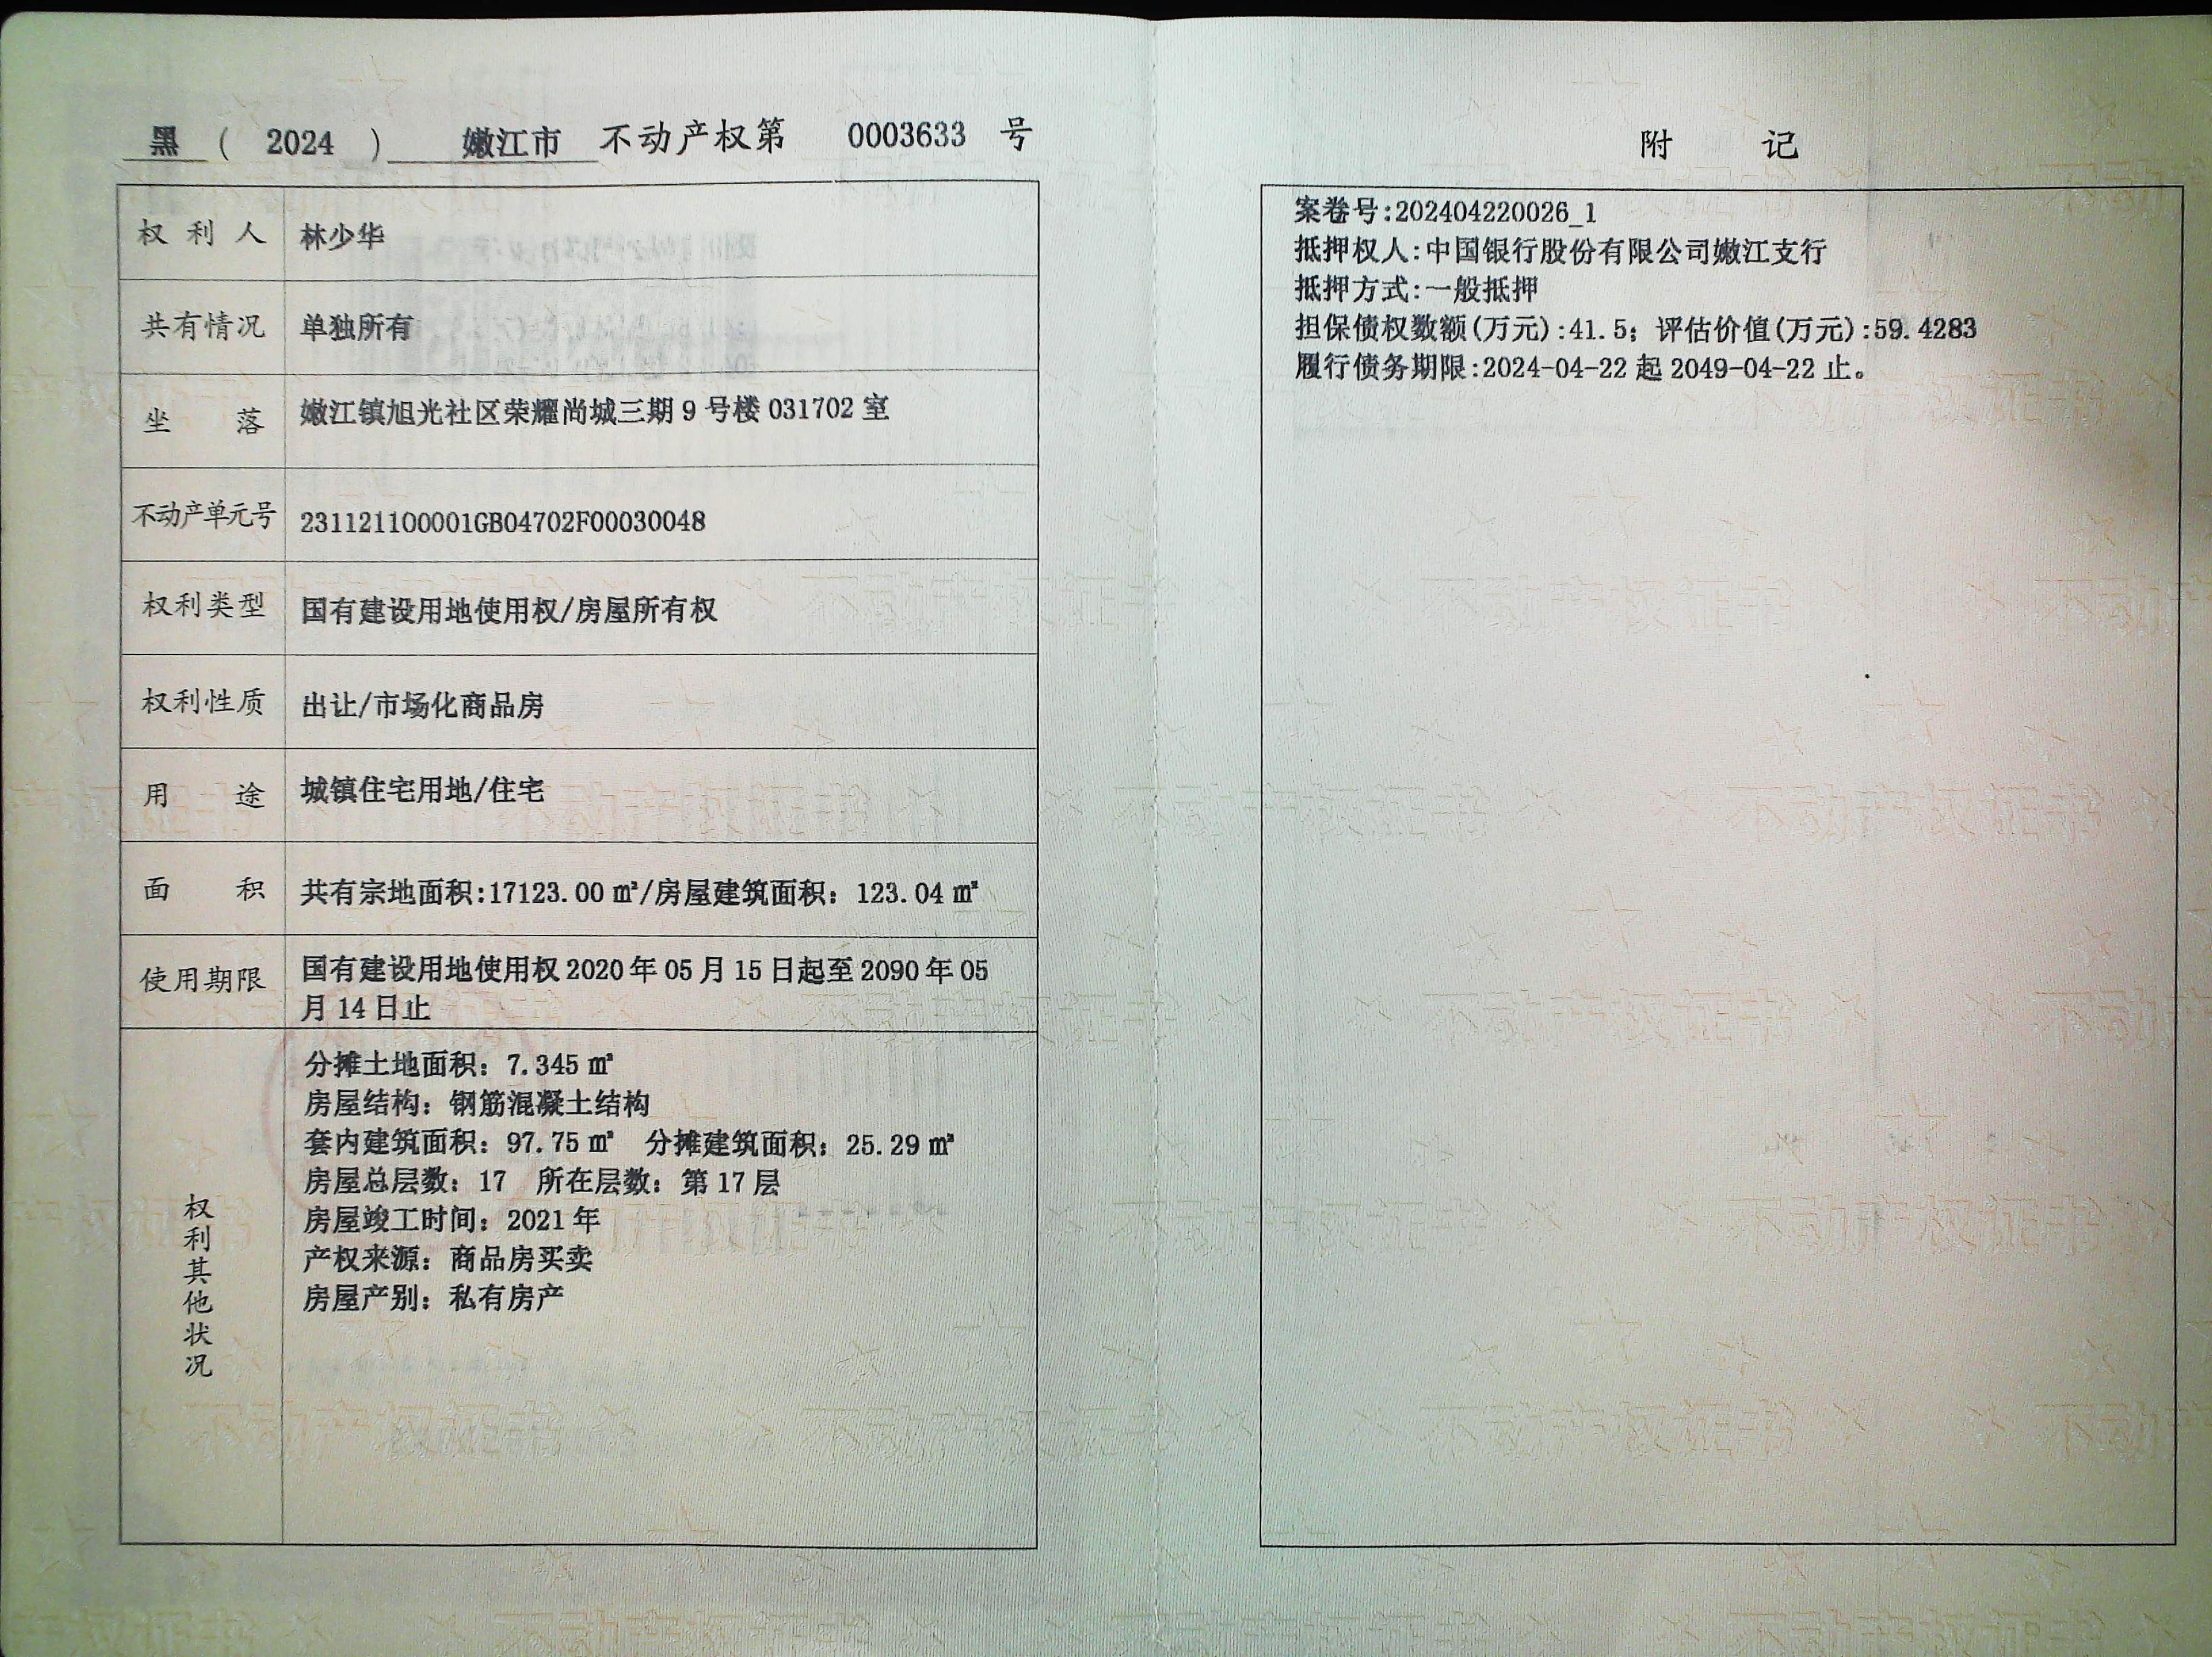 黑 ( 2024 ) 嫩江市 不动产权第 0003633 号
权利人 林少华
共有情况 单独所有
坐落 嫩江镇旭光社区荣耀尚城三期9号楼031702室
不动产单元号 231121100001GB04702F00030048
权利类型 国有建设用地使用权/房屋所有权
权利性质 出让/市场化商品房
用途 城镇住宅用地/住宅
面积 共有宗地面积:17123.00㎡/房屋建筑面积：123.04㎡
使用期限 国有建设用地使用权2020年05月15日起至2090年05
月14日止
权利其他状况
分摊土地面积：7.345㎡
房屋结构：钢筋混凝土结构
套内建筑面积：97.75㎡ 分摊建筑面积：25.29㎡
房屋总层数：17 所在层数：第17层
房屋竣工时间：2021年
产权来源：商品房买卖
房屋产别：私有房产
附记
案卷号:202404220026_1
抵押权人:中国银行股份有限公司嫩江支行
抵押方式:一般抵押
担保债权数额(万元):41.5；评估价值(万元):59.4283
履行债务期限:2024-04-22起2049-04-22止。